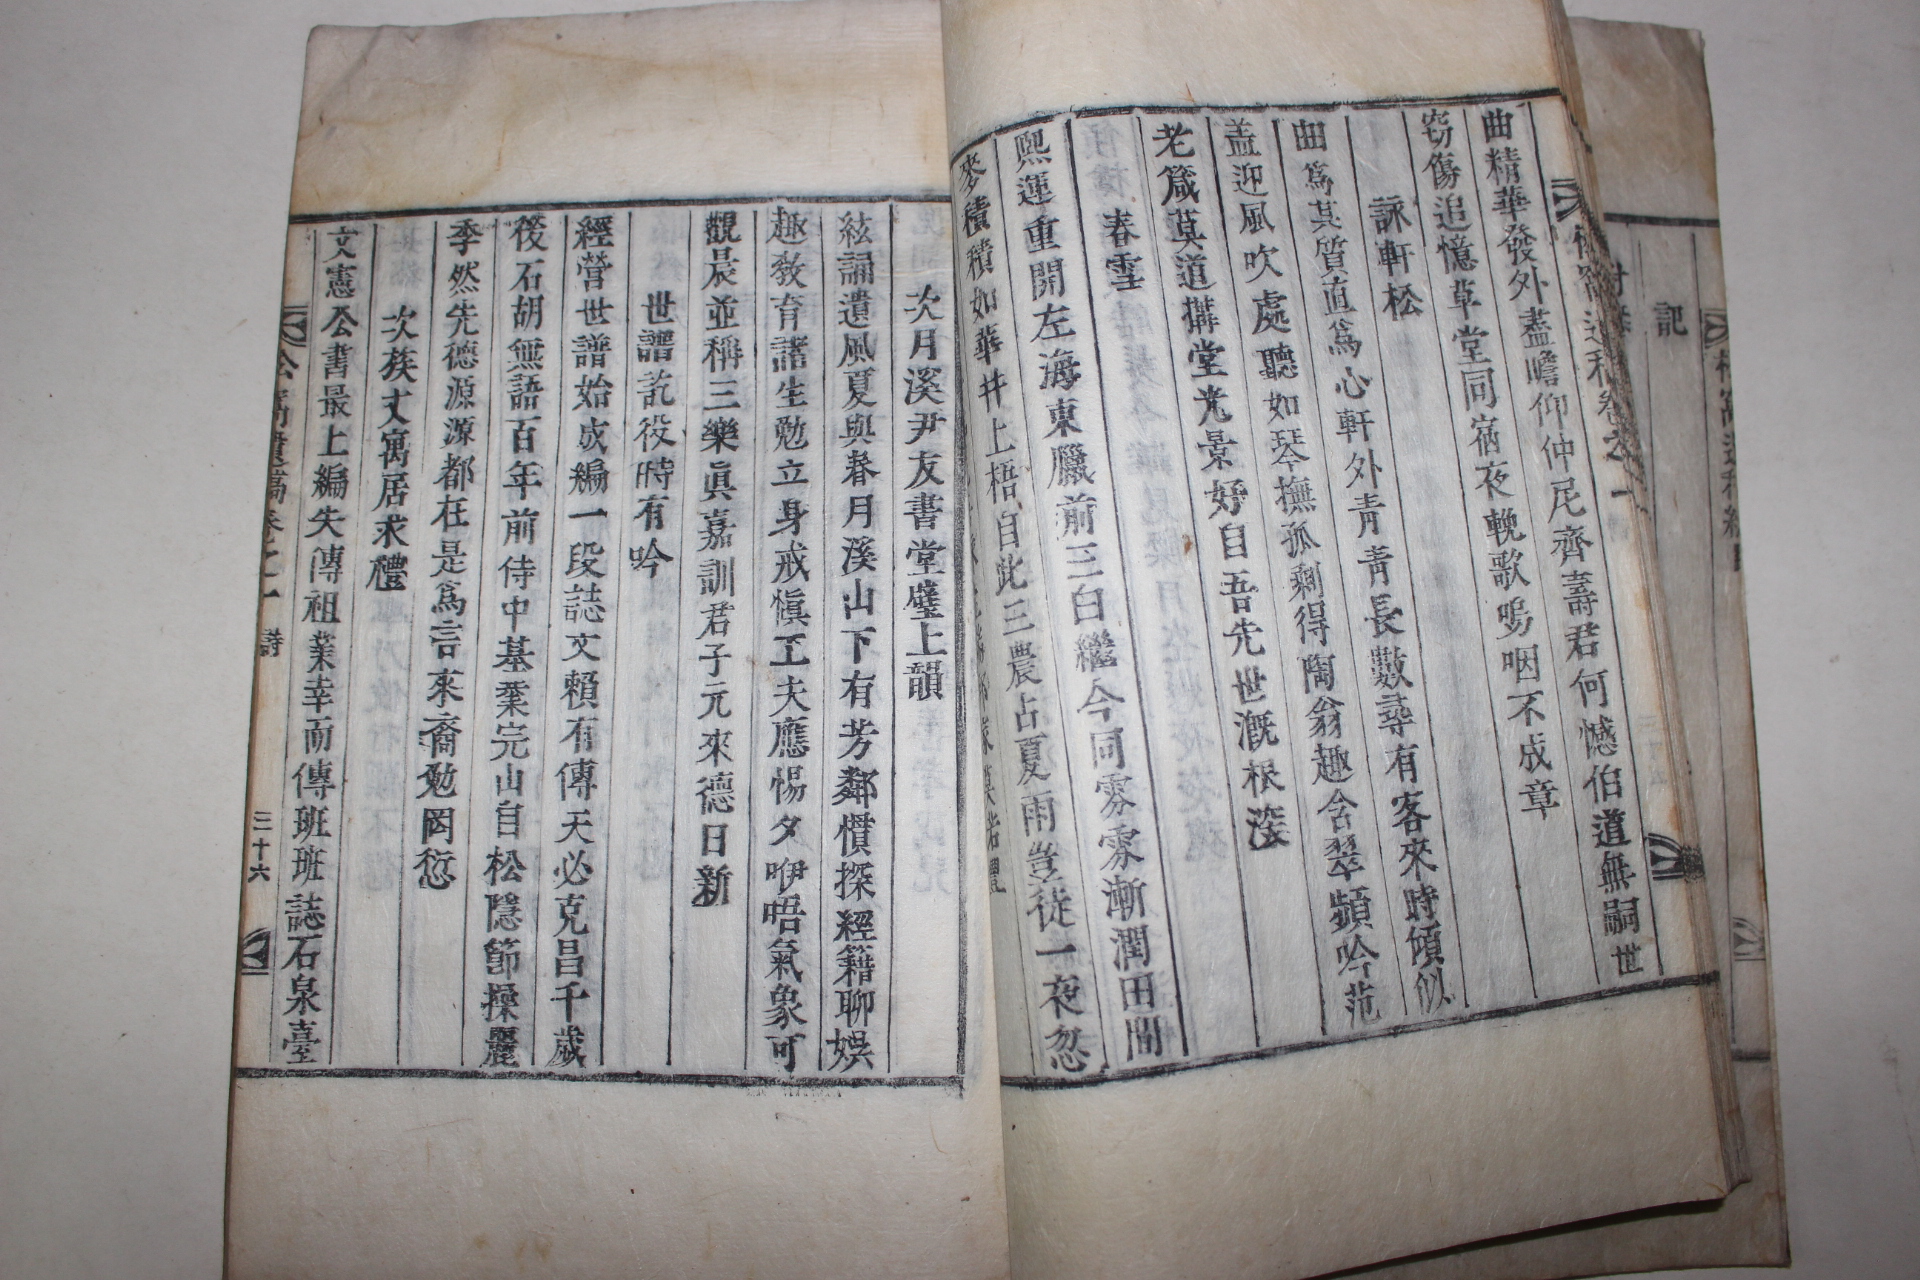 記
曲精華發外盡瞻仰仲尼齊壽君何憾伯道無嗣世
窃傷追憶草堂同宿夜輓歌嗚咽不成章
詠軒松
曲爲其質直爲心軒外靑靑長數尋有客來時傾似
盖迎風吹處聽如琴撫孤剩得陶翁趣含翠頻吟范
老箴莫道搆堂光景好自吾先世漑根深
春雪
熙運重開左海東臘前三白繼今同雰雰漸潤田間
麥積積如華井上梧自此三農占夏雨豈徒一夜忽
次月溪尹友書堂壁上韻
絃誦遺風夏與春月溪山下有芳鄰慣探經籍聊娛
趣敎育諸生勉立身戒愼工夫應惕夕咿唔氣象可
觀晨並稱三樂眞嘉訓君子元來德日新
世譜訖役時有吟
經營世譜始成編一段誌文賴有傳天必克昌千歲
後石胡無語百年前侍中基業完山自松隱節操麗
季然先德源源都在是爲言來裔勉罔愆
次族丈寓居求禮
文憲公書最上編失傳祖業幸而傳班班誌石泉臺
詩
三十六